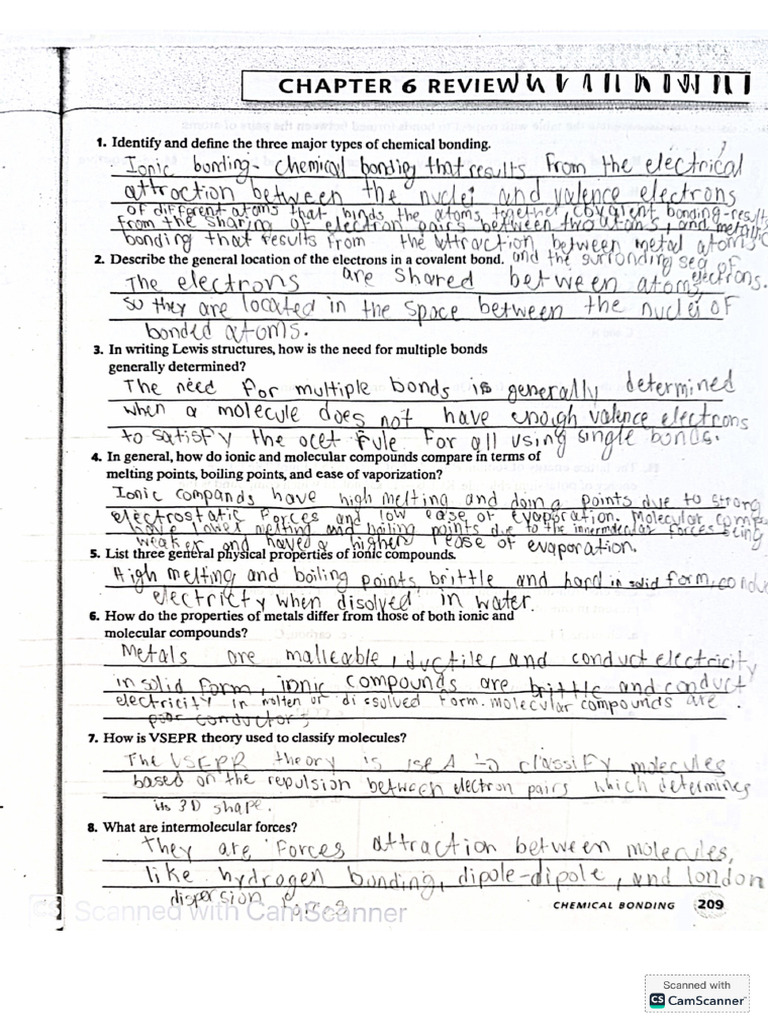 CHAPTER 6 REVIEW
1. Identify and define the three major types of chemical bonding.
Ionic bonding- chemical bonding that results from the electrical
attraction between the nuclei and valence electrons
of different atoms that binds the atoms together covalent bonding-results
from the sharing of electron pairs between two atoms, and metallic
bonding that results from the attraction between metal atoms
2. Describe the general location of the electrons in a covalent bond. and the surronding sea of
electrons.
The electrons are shared between atoms,
so they are located in the space between the nuclei of
bonded atoms.
3. In writing Lewis structures, how is the need for multiple bonds
generally determined?
The need for multiple bonds is generally determined
when a molecule does not have enough valence electrons
to satisfy the ocet rule for all using single bonds.
4. In general, how do ionic and molecular compounds compare in terms of
melting points, boiling points, and ease of vaporization?
Ionic compands have high melting and points due to strong
electrostatic forces and low ease of evaporation. Molecular
have lower melting and boiling points due to the forces being
weaker and have a higher ease of evaporation.
5. List three general physical properties of ionic compounds.
High melting and boiling points, brittle and hard in solid form, conduc
electricty when disolved in water.
6. How do the properties of metals differ from those of both ionic and
molecular compounds?
Metals are malleable, ductiler and conduct electricity
in solid form, ionic compounds are brittle and conduct
electricity in molten or dissolved form. molecular compounds are
poor conductors.
7. How is VSEPR theory used to classify molecules?
The VSEPR theory is used to classify molecules
based on the repulsion between electron pairs which determines
its 3D shape.
8. What are intermolecular forces?
They are forces attraction between molecules,
like hydrogen bonding, dipole-dipole, and london
dispersion forces
CS Scanned with CamScanner
CHEMICAL BONDING 209
Scanned with
CS CamScanner